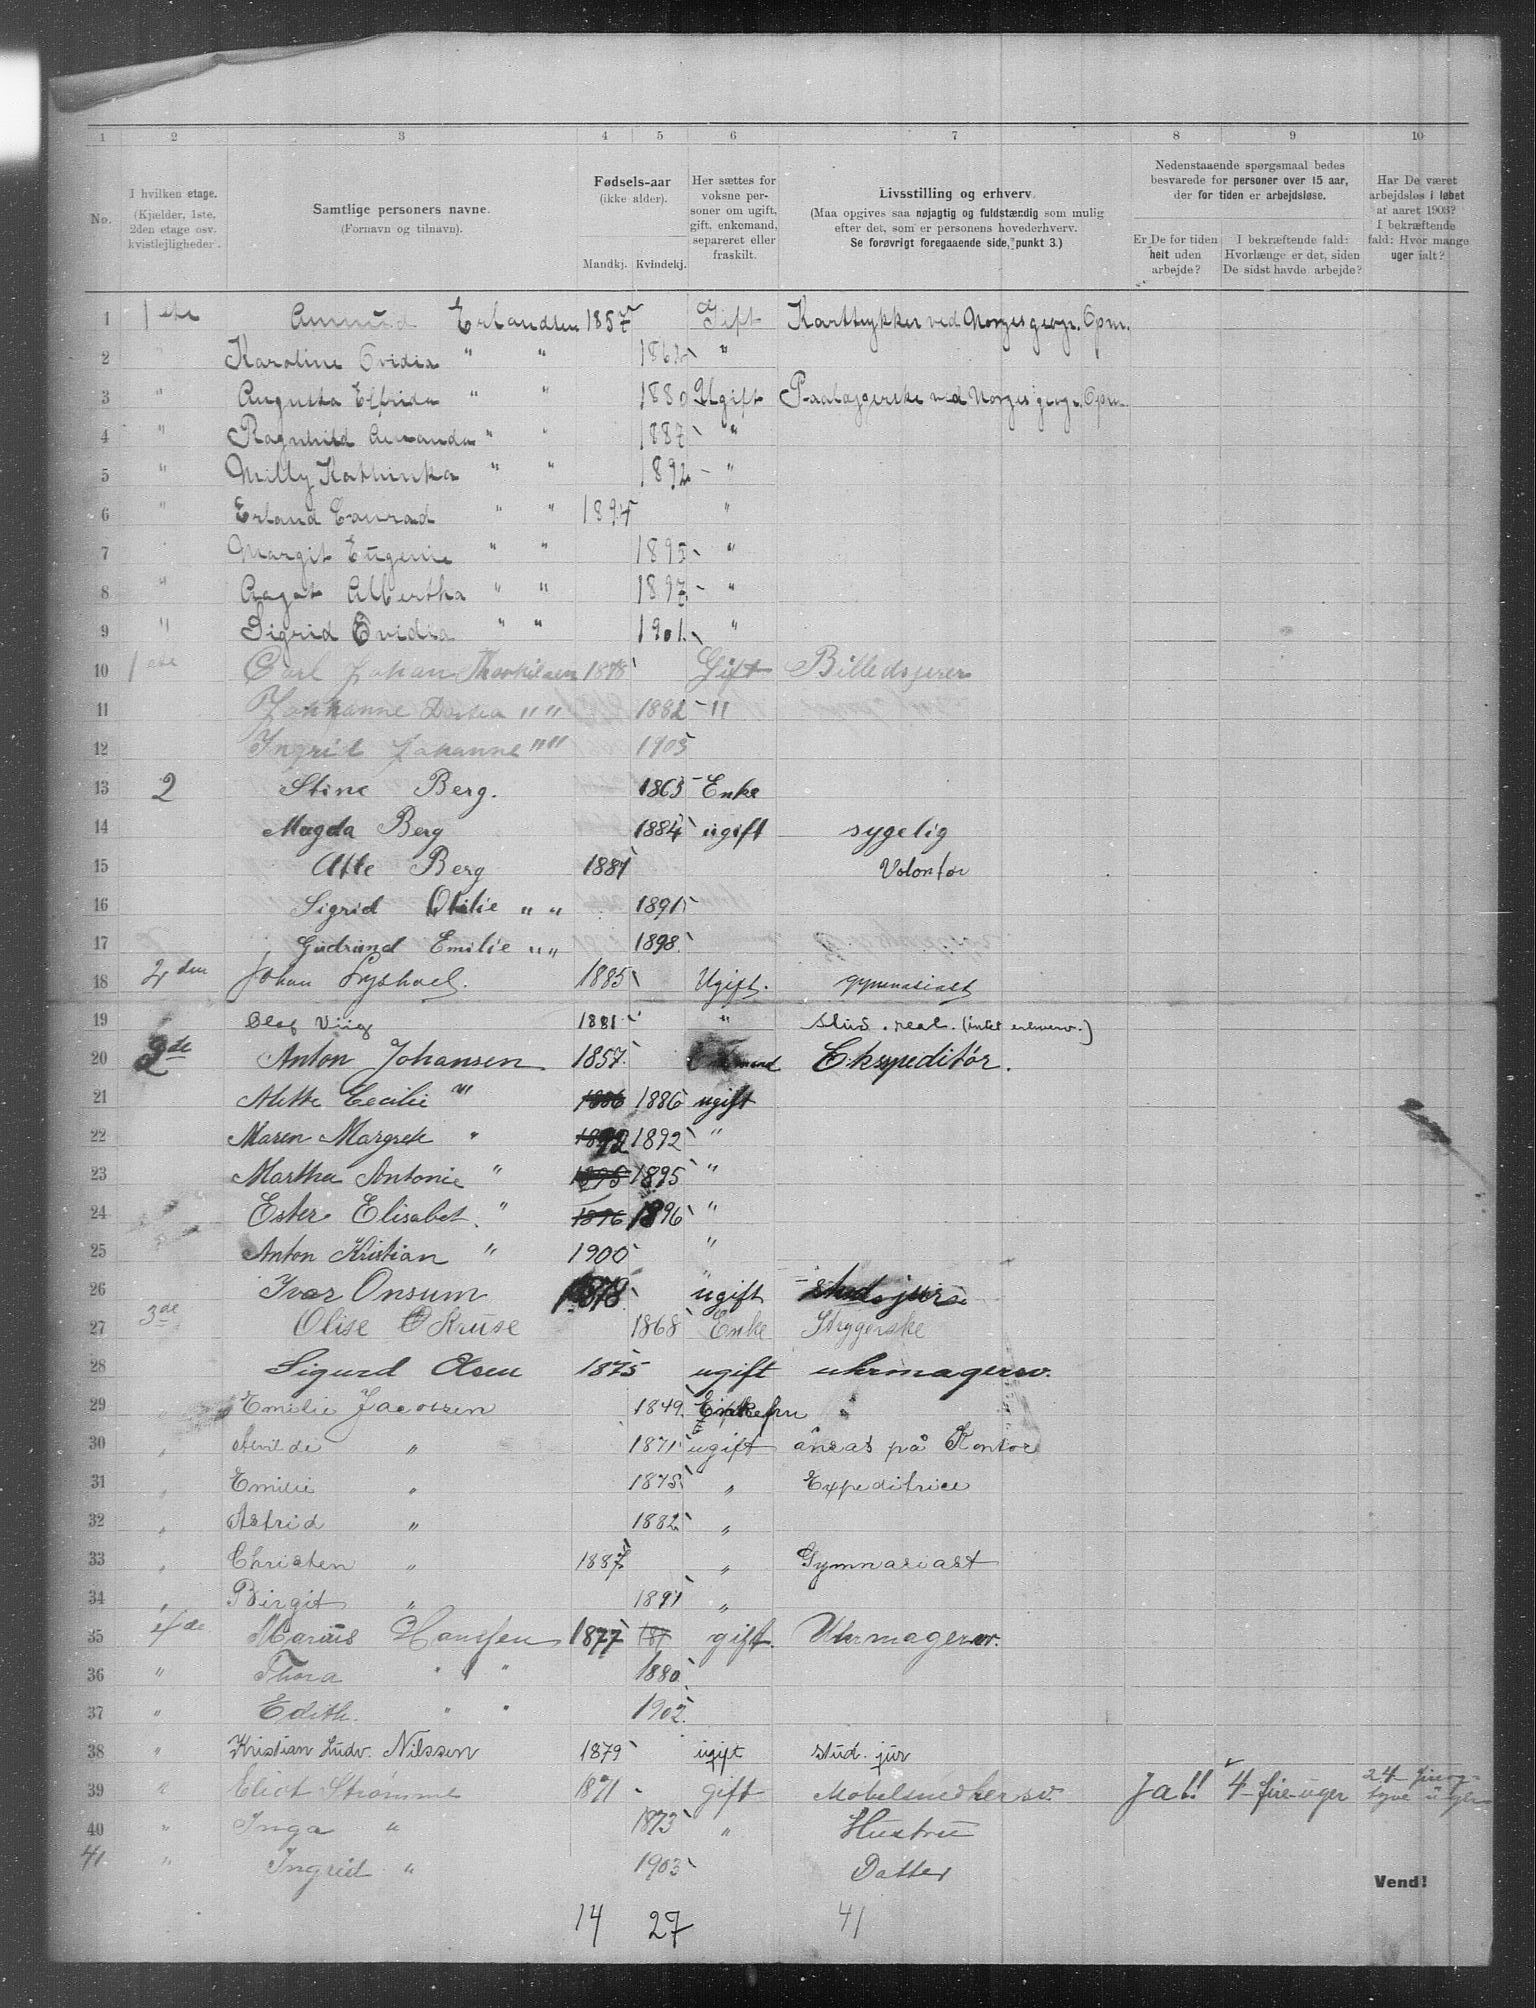 1 2 3 4 5 6 7 8 9 10
No.
I hvilken etage. (Kjælder, 1ste, 2den etage osv. kvistlejligheder.)
Samtlige personers navne. (Fornavn og tilnavn).
Fødsels-aar (ikke alder). Mandkj. Kvindekj.
Her sættes for voksne personer om ugift, gift, enkemand, separeret eller fraskilt.
Livsstilling og erhverv. (Maa opgives saa nøjagtig og fuldstændig som mulig efter det, som er personens hovederhverv. Se forøvrigt foregaaende side, punkt 3.)
Nedenstaaende spørgsmaal bedes besvarede for personer over 15 aar, der for tiden er arbejdsløse.
Er De for tiden helt uden arbejde?
I bekræftende fald: Hvorlænge er det, siden De sidst havde arbejde?
Har De været arbejdsløs i løbet af aaret 1903? I bekræftende fald: Hvor mange uger ialt?
1 1 ete Amund Erlandsen 1857 Gift Karttrykker ved Norges geogr. Opm.
2 " Karoline Ovidia " " 1862 "
3 " Augusta Elfrida " " 1880 Ugift Paalæggerske ved Norges geogr. Opm.
4 " Ragnhild Amanda " " 1887 "
5 " Milly Kathinka " " 1892 "
6 " Erland Conrad " " 1894 "
7 Margit Eugenie " " 1895 "
8 " Aagot Albertha " " 1897 "
9 " Sigrid Ovidia " " 1901 "
10 1 ete Carl Johan Thorkildsen 1878 Gift Billedskjærer
11 Johanne Dortea " " 1882 "
12 Ingrid Johanne " " 1903
13 2 Stine Berg. 1863 Enke
14 Magda Berg 1884 ugift sygelig
15 Atle Berg 1887 Volontør
16 Sigrid Otilie " " 1891
17 Gudrund Emilie " " 1898
18 2 den Johan Lyshoel. 1885 Ugift. gymnasiast
19 Olaf Viig 1881 " stud. real. (intet erhverv.)
20 2de Anton Johansen 1857 Ekspeditør.
21 Mette Cecilie " 1886 1886 ugift
22 Maren Margrete " 1892 1892 "
23 Martha Antonie " 1895 1895 "
24 Ester Elisabet. " 1896 1896 "
25 Anton Kristian " 1900 "
26 Ivar Onsum 1878 ugift stud. juris
27 3de Olise O Kruse 1868 Enke Strygerske
28 Sigurd Olsen 1875 ugift uhrmagersv.
29 " Emilie Jacobsen 1849 Enkefru
30 " Alvilde " 1871 ugift ansat på Kontor
31 " Emilie " 1878 " Expeditrice
32 " Astrid " 1882 "
33 " Christen " 1887 " Gymnasiast
34 " Birgit " 1891 "
35 4de Marius Hanssen 1877 187 gift. Uhrmagersv.
36 " Thora " " 1880
37 " Edith. " " 1902
38 " Kristian Ludv. Nilssen 1879 ugift stud. jur
39 " Eliot Strømme 1871 gift Møbelsnedkersv. Ja!! 4 fire uger 24 fireogtyve uger
40 " Inga " 1873 " Hustru
41 " Ingrid " 1903 Datter
Vend!
14 27 41